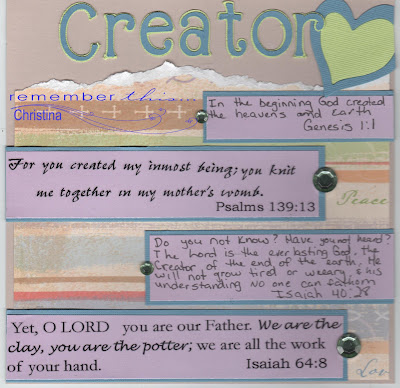 Creator
remember this
Christina
In the beginning God created
the heavens and Earth
Genesis 1:1
For you created my inmost being; you knit
me together in my mother's womb.
Psalms 139:13
Peace
Do you not know? Have you not heard?
The Lord is the everlasting God, the
Creator of the end of the earth. He
will not grow tired or weary, & his
understanding no one can fathom
Isaiah 40:28
Yet, O LORD you are our Father. We are the
clay, you are the potter; we are all the work
of your hand. Isaiah 64:8
Lov